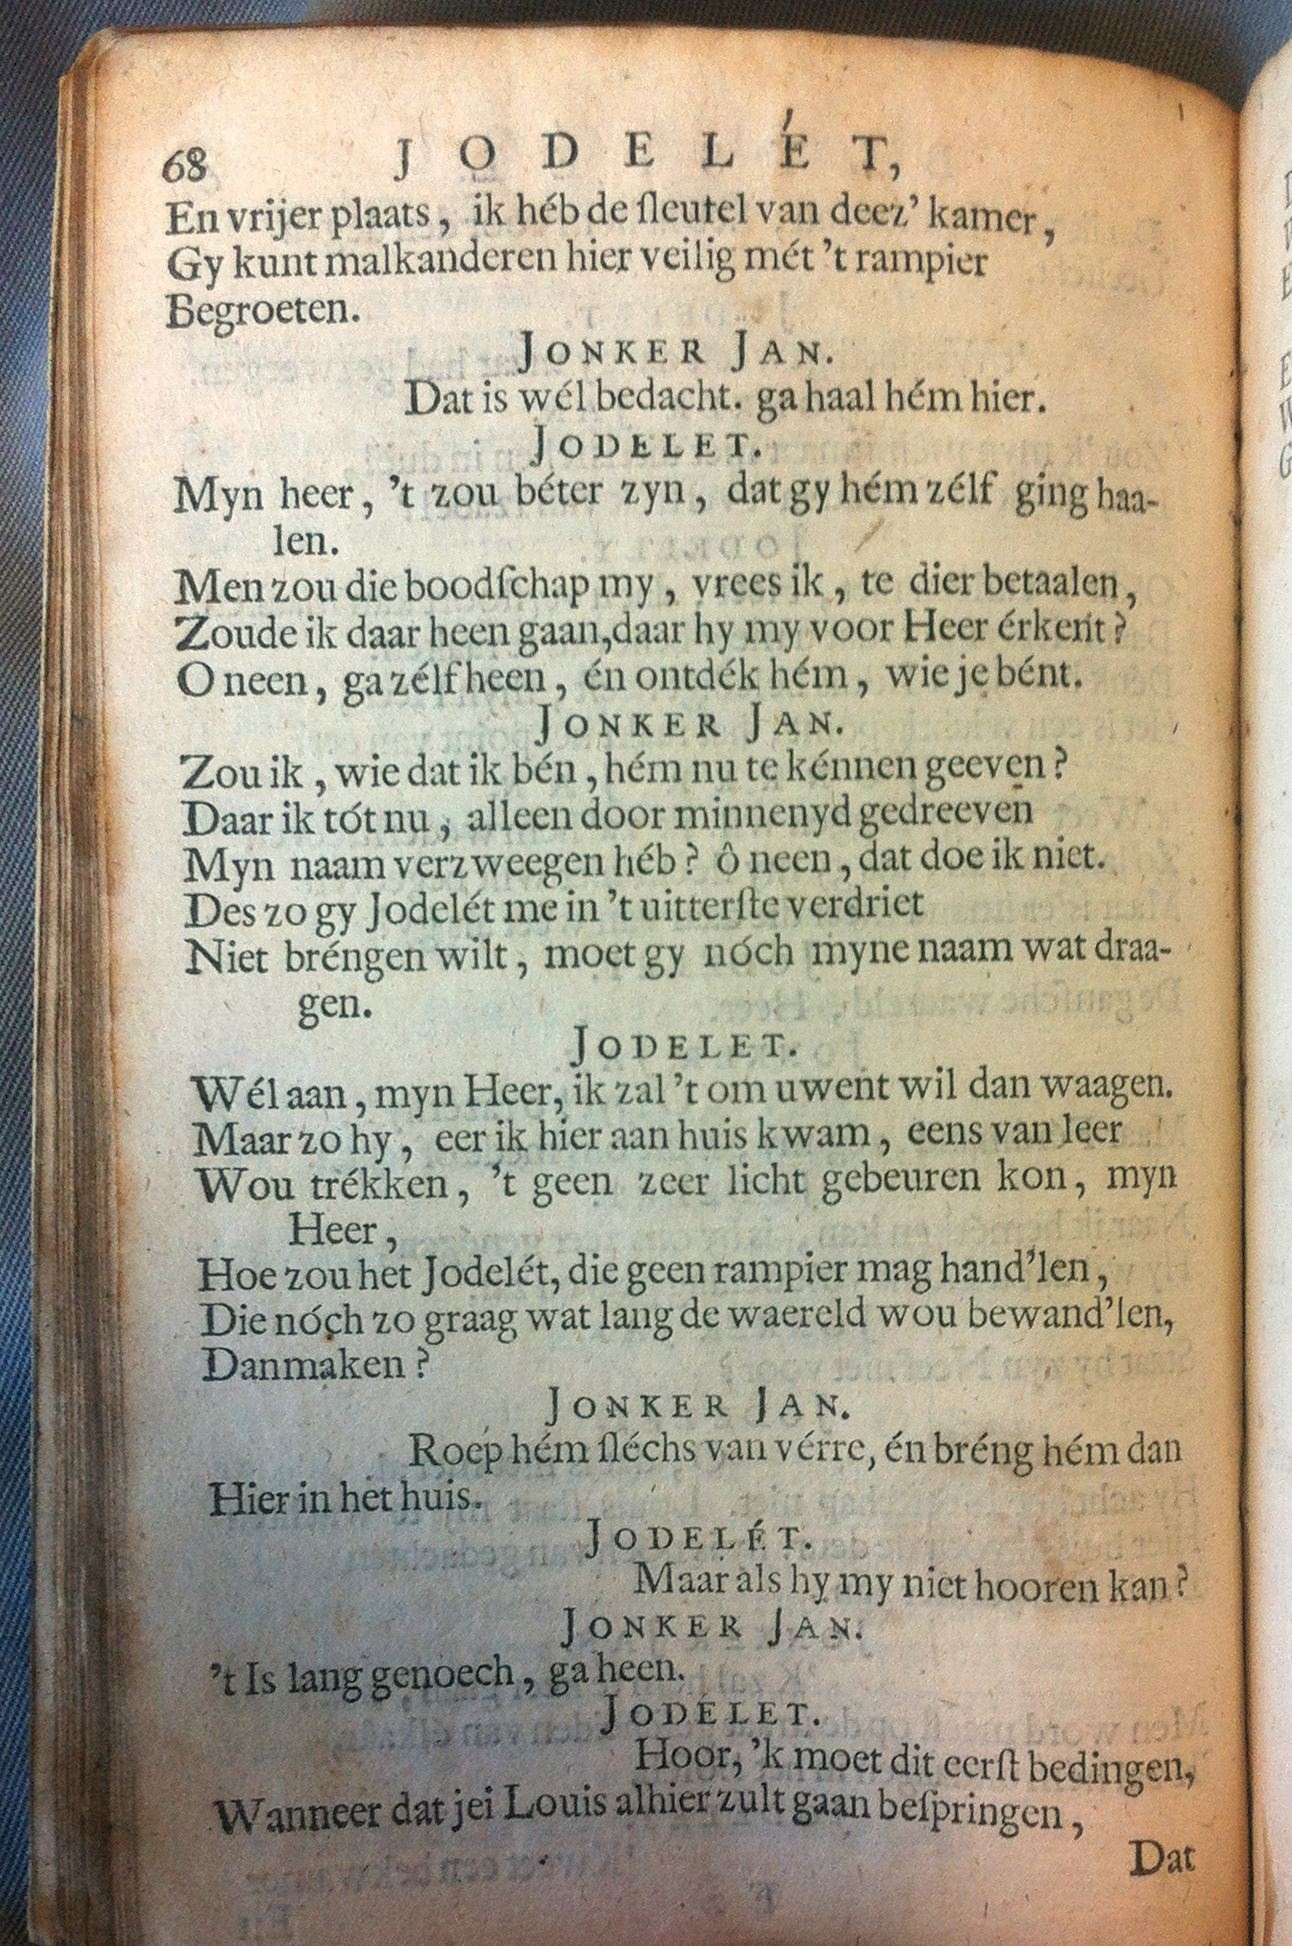 68 JODELÉT,
En vrijer plaats, ik héb de ſleutel van deez’ kamer,
Gy kunt malkanderen hier veilig mét ’t rampier
Begroeten.
JONKER JAN.
Dat is wél bedacht. ga haal hém hier.
JODELET.
Myn heer, ’t zou béter zyn, dat gy hém zélf ging haa-
len.
Men zou die boodſchap my, vrees ik, te dier betaalen,
Zoude ik daar heen gaan, daar hy my voor Heer érkent?
O neen, ga zélf heen, én ontdék hém, wie je bént.
JONKER JAN.
Zou ik, wie dat ik bén, hém nu te kénnen geeven?
Daar ik tót nu, alleen door minnenyd gedreeven
Myn naam verzweegen héb? ô neen, dat doe ik niet.
Des zo gy Jodelét me in ’t uitterſte verdriet
Niet bréngen wilt, moet gy nóch myne naam wat draa-
gen.
JODELET.
Wél aan, myn Heer, ik zal ’t om uwent wil dan waagen.
Maar zo hy, eer ik hier aan huis kwam, eens van leer
Wou trékken, ’t geen zeer licht gebeuren kon, myn
Heer,
Hoe zou het Jodelét, die geen rampier mag hand’len,
Die nóch zo graag wat lang de waereld wou bewand’len,
Dan maken?
JONKER JAN.
Roep hém ſléchs van vérre, én bréng hém dan
Hier in het huis.
JODELÉT.
Maar als hy my niet hooren kan?
JONKER JAN.
’t Is lang genoech, ga heen.
JODÉLET.
Hoor, ’k moet dit eerſt bedingen,
Wanneer dat jei Louis alhier zult gaan beſpringen,
Dat